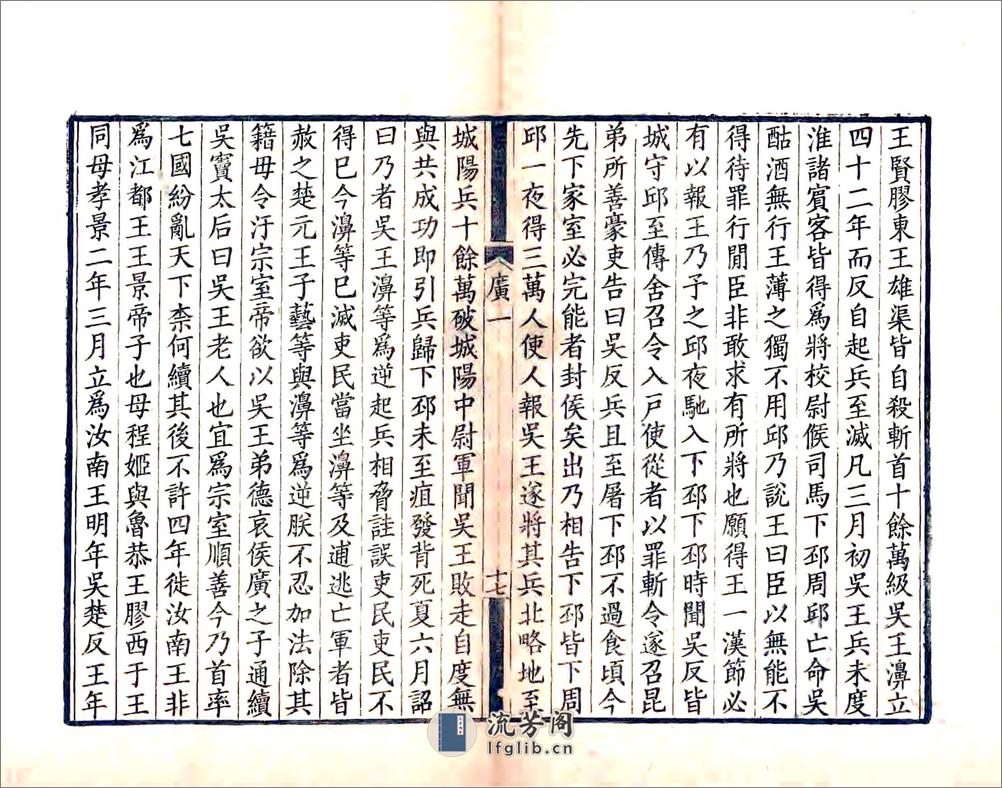 王賢膠東王雄渠皆自殺斬首十餘萬級吳王濞立
四十二年而反自起兵至滅凡三月初吳王兵未度
淮諸賓客皆得爲將校尉候司馬下邳周邱亡命吳
酤酒無行王薄之獨不用邱乃說王曰臣以無能不
得待罪行間臣非敢求有所將也願得王一漢節必
有以報王乃予之邱夜馳入下邳下邳時聞吳反皆
城守邱至傳舍召令入戸使從者以罪斬令遂召昆
弟所善豪吏告曰吳反兵且至屠下邳不過食頃今
先下家室必完能者封侯矣出乃相告下邳皆下周
邱一夜得三萬人使人報吳王遂將其兵北略地至
廣一
十七
城陽兵十餘萬破城陽中尉軍聞吳王敗走自度無
與共成功即引兵歸下邳未至疽發背死夏六月詔
曰乃者吳王濞等爲逆起兵相脅詿誤吏民吏民不
得已今濞等已滅吏民當坐濞等及逋逃亡軍者皆
赦之楚元王子藝等與濞等爲逆朕不忍加法除其
籍毋令汙宗室帝欲以吳王弟德哀侯廣之子通續
吳竇太后曰吳王老人也宜爲宗室順善今乃首率
七國紛亂天下柰何續其後不許四年徙汝南王非
爲江都王王景帝子也母程姬與魯恭王膠西于王
同母孝景二年三月立爲汝南王明年吳楚反王年
流芳阁
lfglib.cn